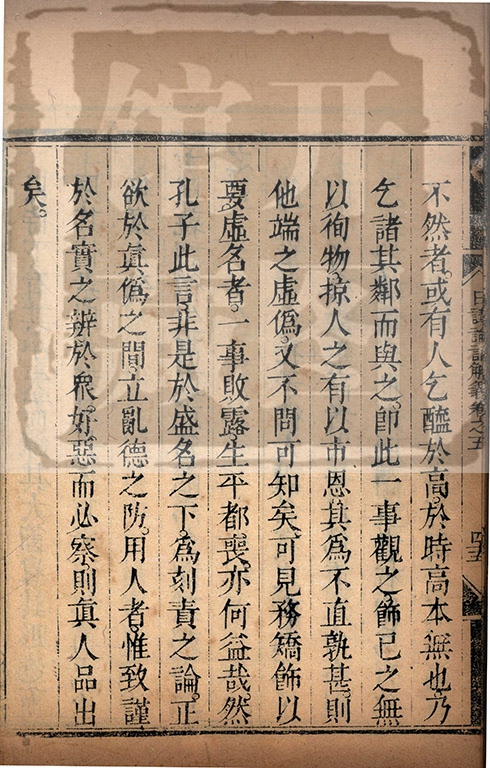 不然者。或有人乞醯於高。於時高本無也。乃
乞諸其鄰而與之。卽此一事觀之。飾已之無
以徇物。掠人之有以市恩。其爲不直孰甚。則
他端之虛僞。又不問可知矣。可見務矯飾以
要虛名者。一事敗露。生平都喪。亦何益哉。然
孔子此言。非是於盛名之下。爲刻責之論。正
欲於眞僞之間。立亂德之防。用人者。惟致謹
於名實之辨。於衆好惡而必察。則眞人品出
矣。
日講論語解義卷之五
四五